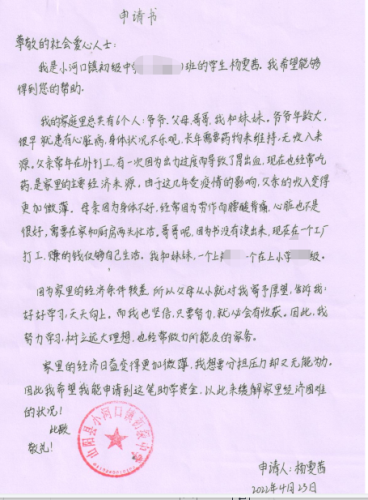 申请书
尊敬的社会爱心人士:
我是小河口镇初级中(班的学生杨雯茜.我希望能够
得到您的帮助.
我的家庭里总共有6个人:爷爷、父母、哥哥、我和妹妹。爷爷年龄大,
很早就患有心脏病,身体状况不乐观,长年需要药物来维持,无收入来
源。父亲常年在外打工,有一次因为出力过度而导致了胃出血,现在也经常吃
药,是家里的主要经济来源。由于这几年受疫情的影响,父亲的收入变得
更加微薄。母亲因为身体不好,经常因为劳作而腰酸背痛,心脏也不是
很好,需要在家和厨房两头忙活。哥哥呢,因为书没有读出来,现在在一个工厂
打工,赚的钱仅够自己生活。我和妹妹,一个上 一个在上小学 级.
因为家里的经济条件较差,所以父母从小就对我寄予厚望,告诉我:
好好学习,天天向上。而我也坚信,只要努力,就必会有收获。因此,我
努力学习,树立远大理想,也经常做力所能及的家务。
家里的经济日益变得更加微薄,我想要分担压力却又无能为力。
因此我希望我能申请到这笔助学资金,以此来缓解家里经济困难
的状况!
此致
敬礼!
山阳县小河口镇初级中学
申请人:杨雯茜
2022年4月23日